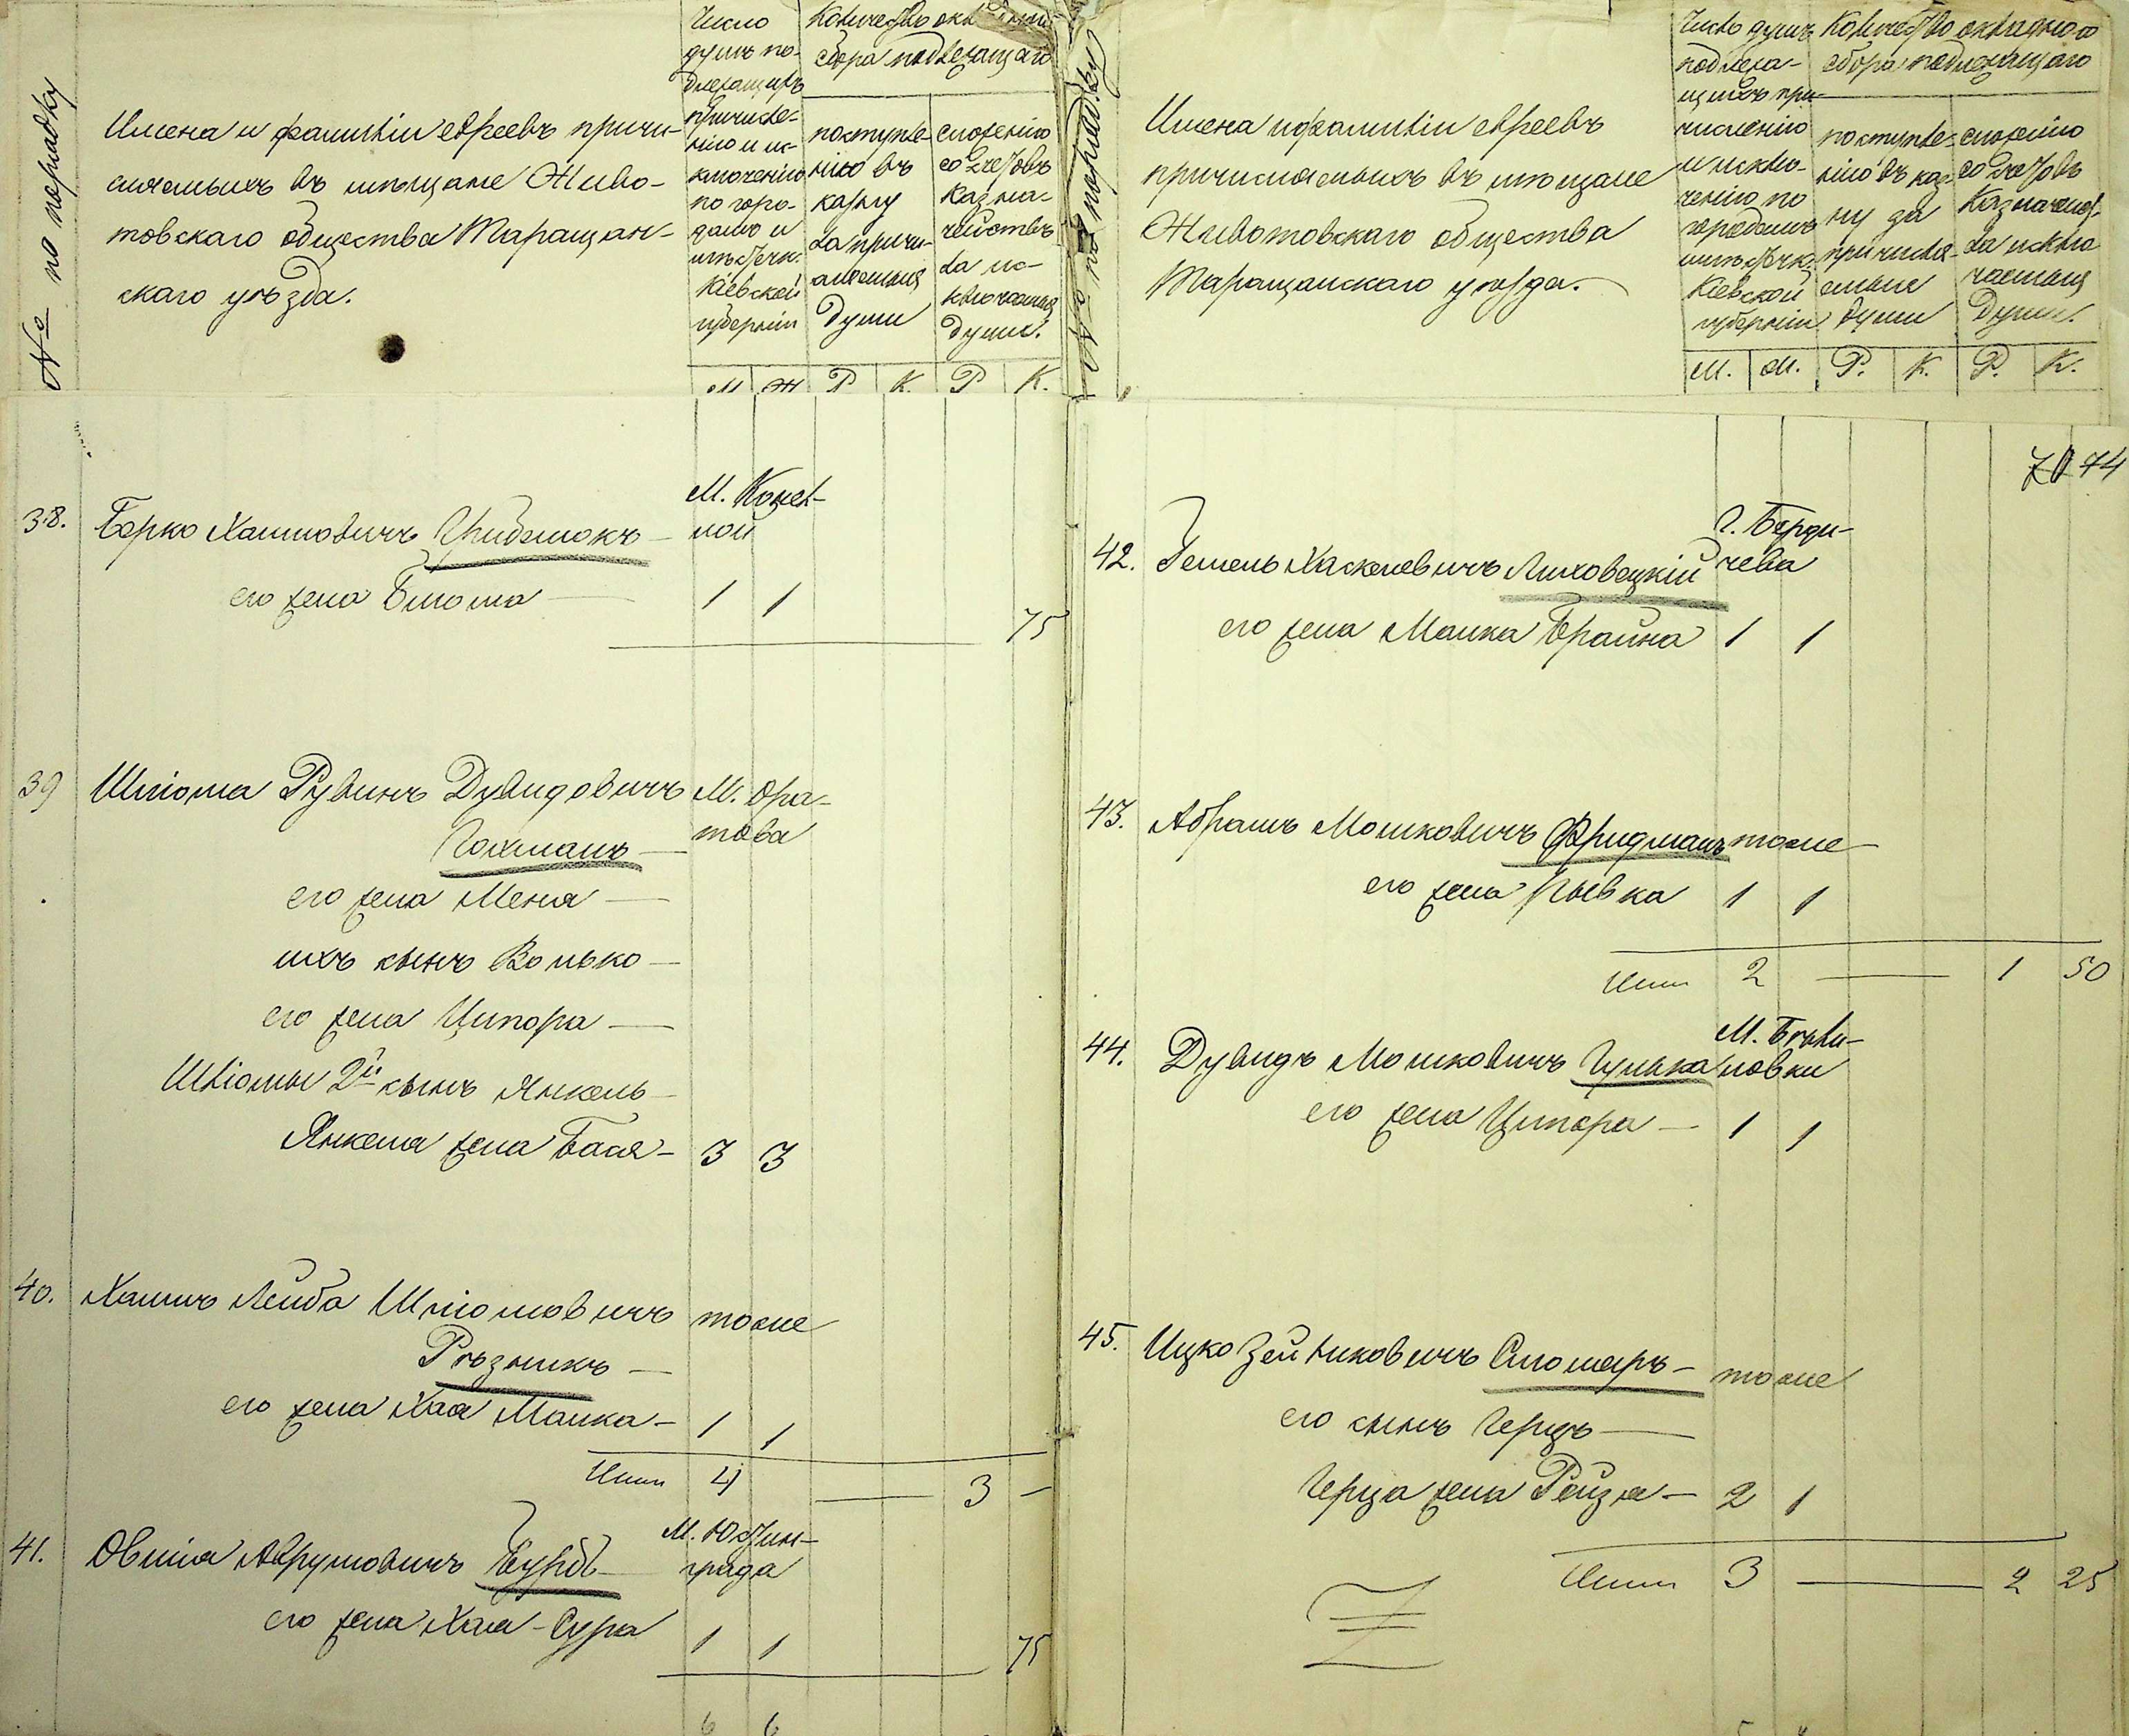 № по порядку
Имена и фамиліи евреевъ причи-
сляемыхъ въ мѣщане Живо-
товскаго общества Таращан-
скаго уѣзда.
Число
душъ по-
длежащихъ
причисле-
нію и ис-
ключенію
по горо-
дамъ и
мѣстечк.
Кіевской
губерніи
Количество
сбора подлежащаго
поступле-
нію въ
казну
за причи-
сляемыя
души
сложенію
со счетовъ
Казна-
чействъ
за ис-
ключаемыя
души.
М Ж Р К. Р К.
38. Берко Хаимовичъ
М. Конел-
ной
его жена Блюма — 1 1
75
39 Шліома Рувинъ Дувидовичъ М. Ора-
това
Гохманъ —
его жена Меня —
ихъ сынъ Волько —
его жена Ципора —
Шліомы 2й сынъ Янкель —
Янкеля жена Бася — 3 3
40. Хаимъ Лейба Шліомовичъ тоже
Рѣзникъ —
его жена Хая Малка — 1 1
Итого 4 — 3 —
41. Овшія Аврумовичъ М. Юстин-
града
его жена Хая-Сура 1 1
75
6 6
№ по порядку
Имена и фамиліи евреевъ
причисляемыхъ въ мѣщане
Животовскаго общества
Таращанскаго уѣзда. —
Число душъ
подлежа-
щихъ при-
численію
и исклю-
ченію по
городамъ
мѣстечк.
Кіевской
губерніи
Количество окладного
сбора подлежащаго
поступле-
нію въ каз-
ну за
причисля-
емыя
души
сложенію
со счетовъ
Казначейст-
ва исклю-
чаемыя
души.
М. М. Р. К. Р. К.
74
42. Гемель Хаскелевичъ Липовецкій
Г. Берди-
чева
его жена Малка Браина 1 1
43. Абрамъ Мошковичъ Фридманъ тоже —
его жена Рывка 1 1
Итого 2 — 1 50
44. Дувидъ Мошковичъ Гулька
М. Бѣли-
ловки
его жена Ципора — 1 1
45. Ицко Зейликовичъ Столяръ — тоже
его сынъ Герцъ —
Герца жена Рейзя — 2 1
Итого 3 — 2 25